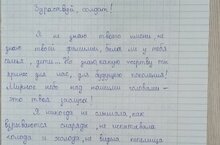 Здравствуй, солдат!
Я не знаю твоего имени, не
знаю твоей фамилии, была ли у тебя
семья, дети... Но знаю, какую жертву ты
принёс для нас, для будущего поколения!
Мирное небо над нашими головами –
это твоя заслуга!
Я никогда не слышала, как
взрываются снаряды, не испытывала
холода и голода, не видела